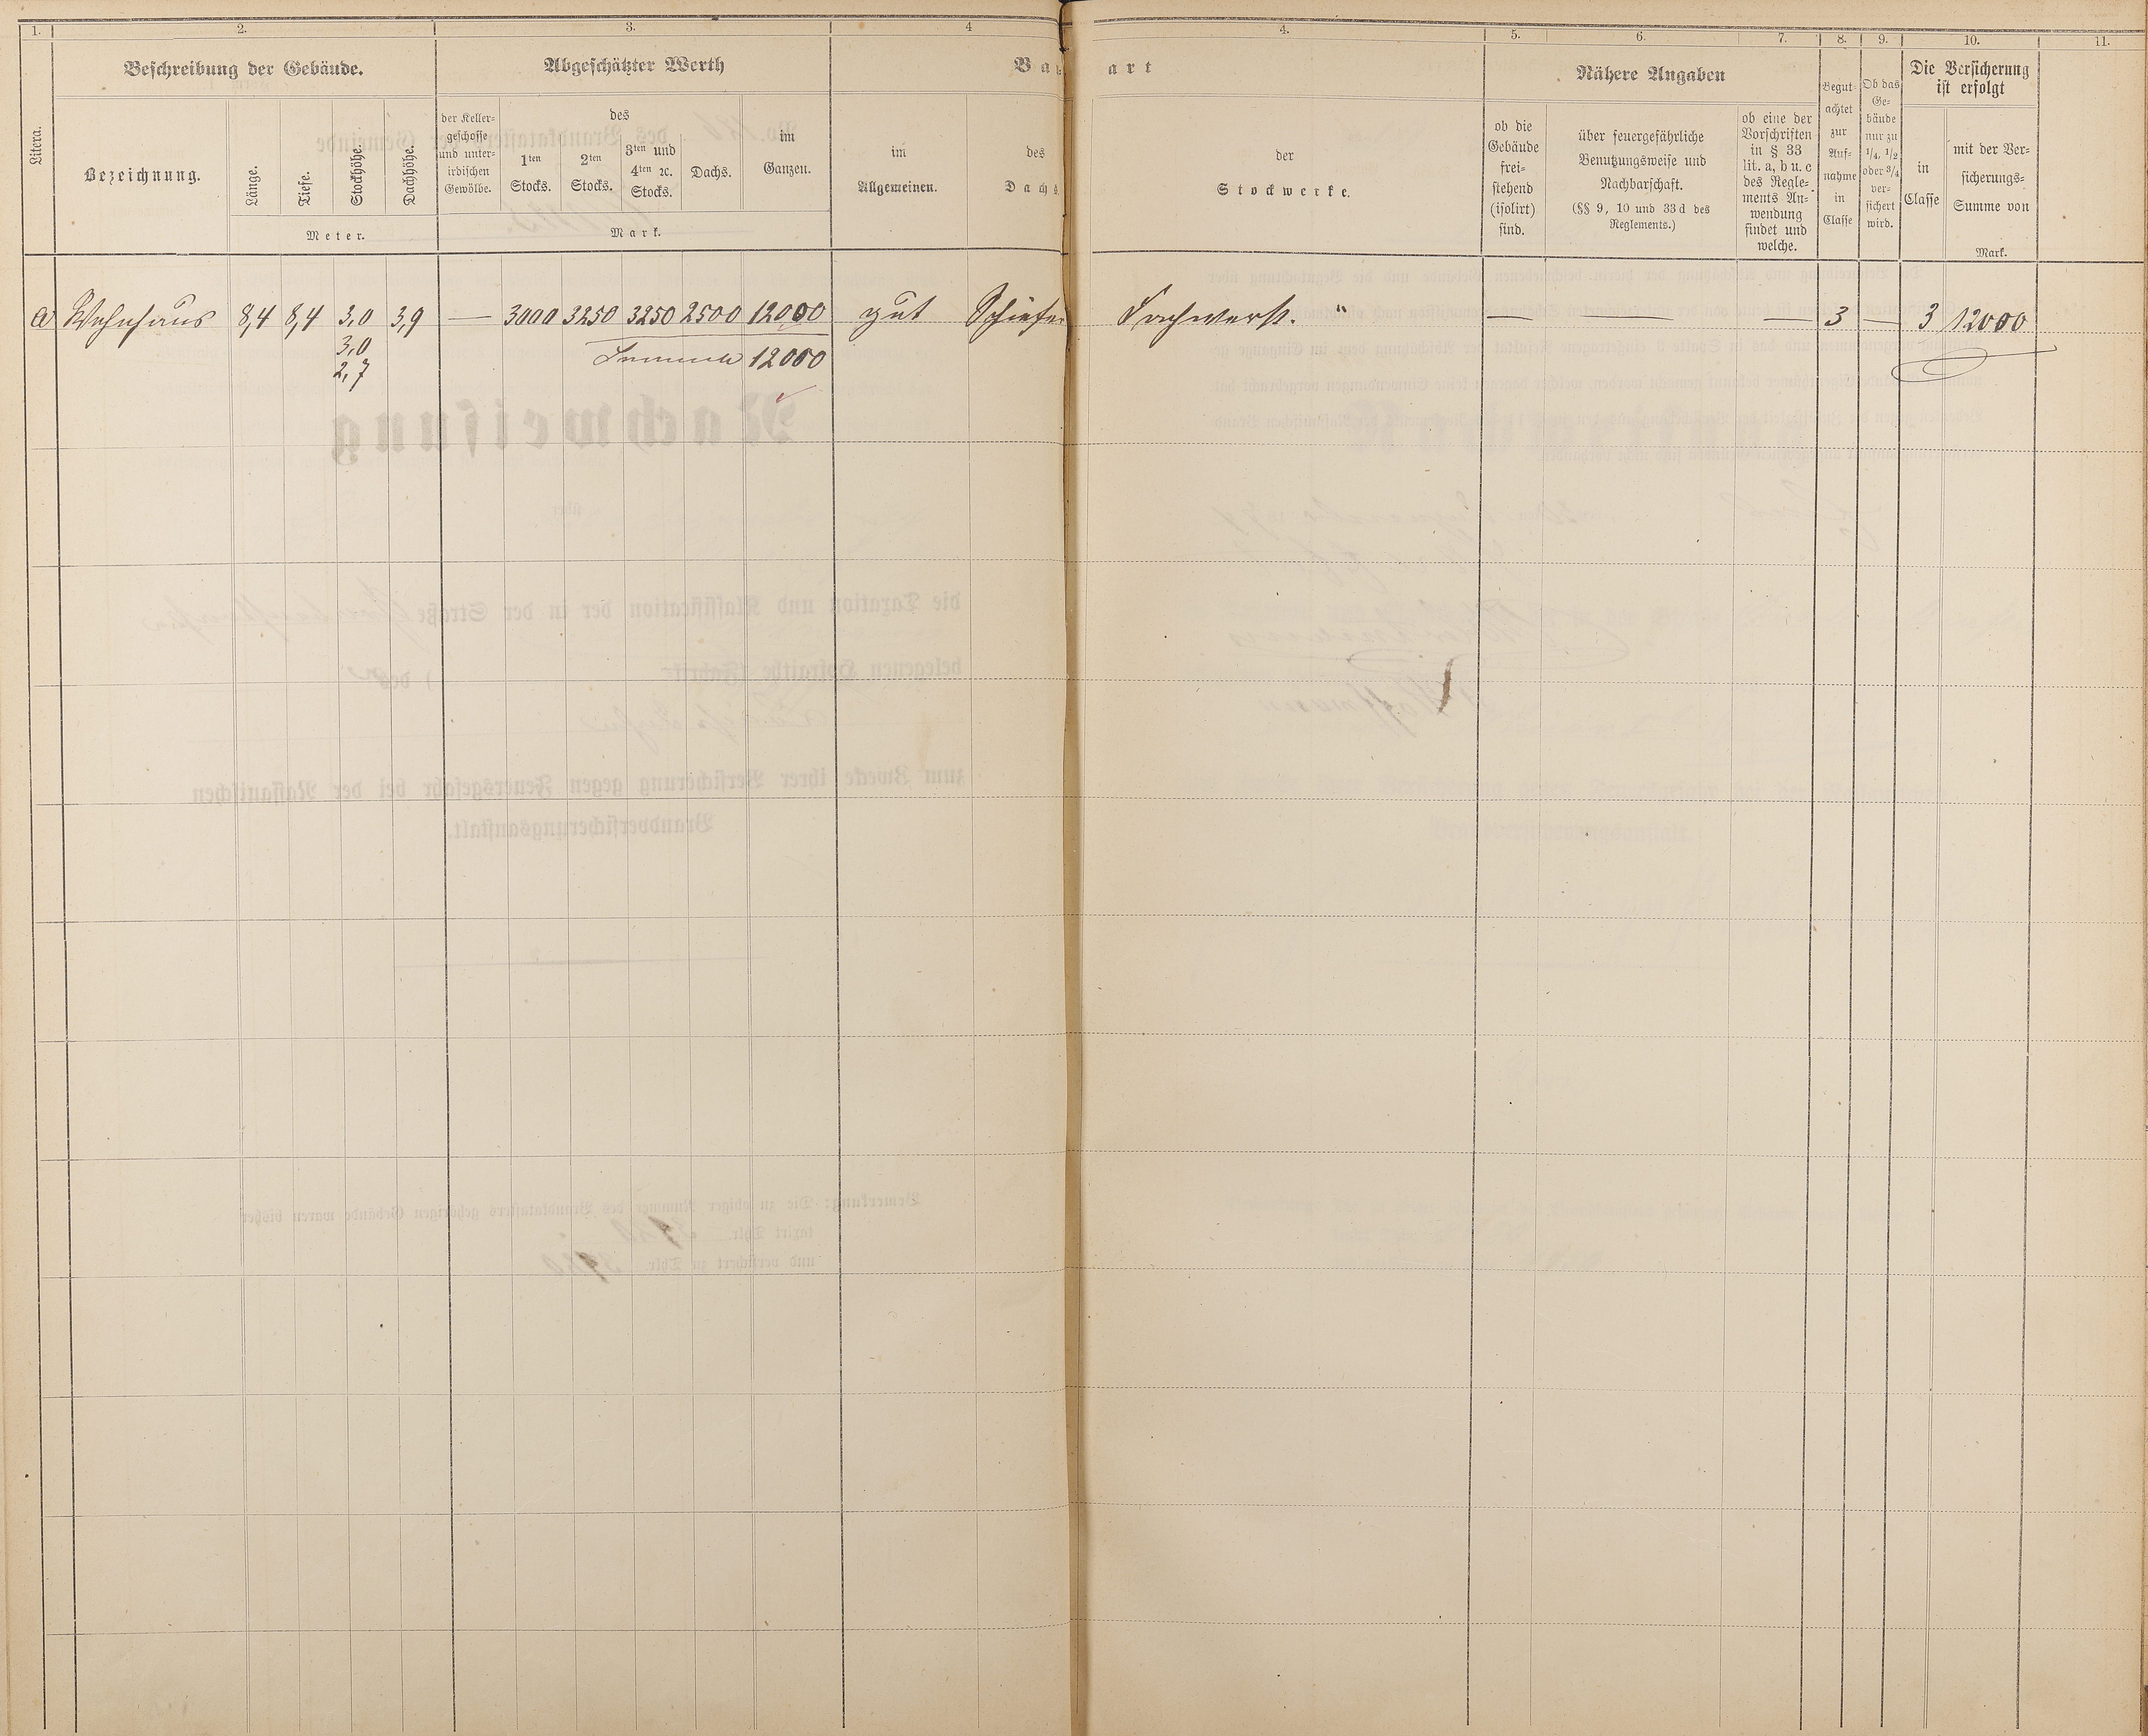 1. 2. 3. 4 4. 5. 6. 7. 8. 9. 10. 11.
Litera.
Beschreibung der Gebäude.
Bezeichnung.
Länge.
Tiefe.
Stockhöhe.
Dachhöhe.
Meter.
Abgeschätzter Werth
der Keller-
geschosse
und unter-
irdischen
Gewölbe.
des
1ten
Stocks.
2ten
Stocks.
3ten und
4ten ꝛc.
Stocks.
Dachs.
im
Ganzen.
Mark.
Bauart
im
Allgemeinen.
des
Dachs.
der
Stockwerke.
Nähere Angaben
ob die
Gebäude
frei-
stehend
(isolirt)
sind.
über feuergefährliche
Benutzungsweise und
Nachbarschaft.
(§§ 9, 10 und 33 d des
Reglements.)
ob eine der
Vorschriften
in § 33
lit. a, b u. c
des Regle-
ments An-
wendung
findet und
welche.
Begut-
achtet
zur
Auf-
nahme
in
Classe
Ob das
Ge-
bäude
nur zu
1/4, 1/2
oder 3/4
ver-
sichert
wird.
Die Versicherung
ist erfolgt
in
Classe
mit der Ver-
sicherungs-
Summe von
Mark.
a Wohnhaus 8,4 8,4 3,0 3,9 — 3000 3250 3250 2500 12000 gut Schiefer Fachwerk. " — — — 3 — 3 12000
3,0
2,7
Summa 12000